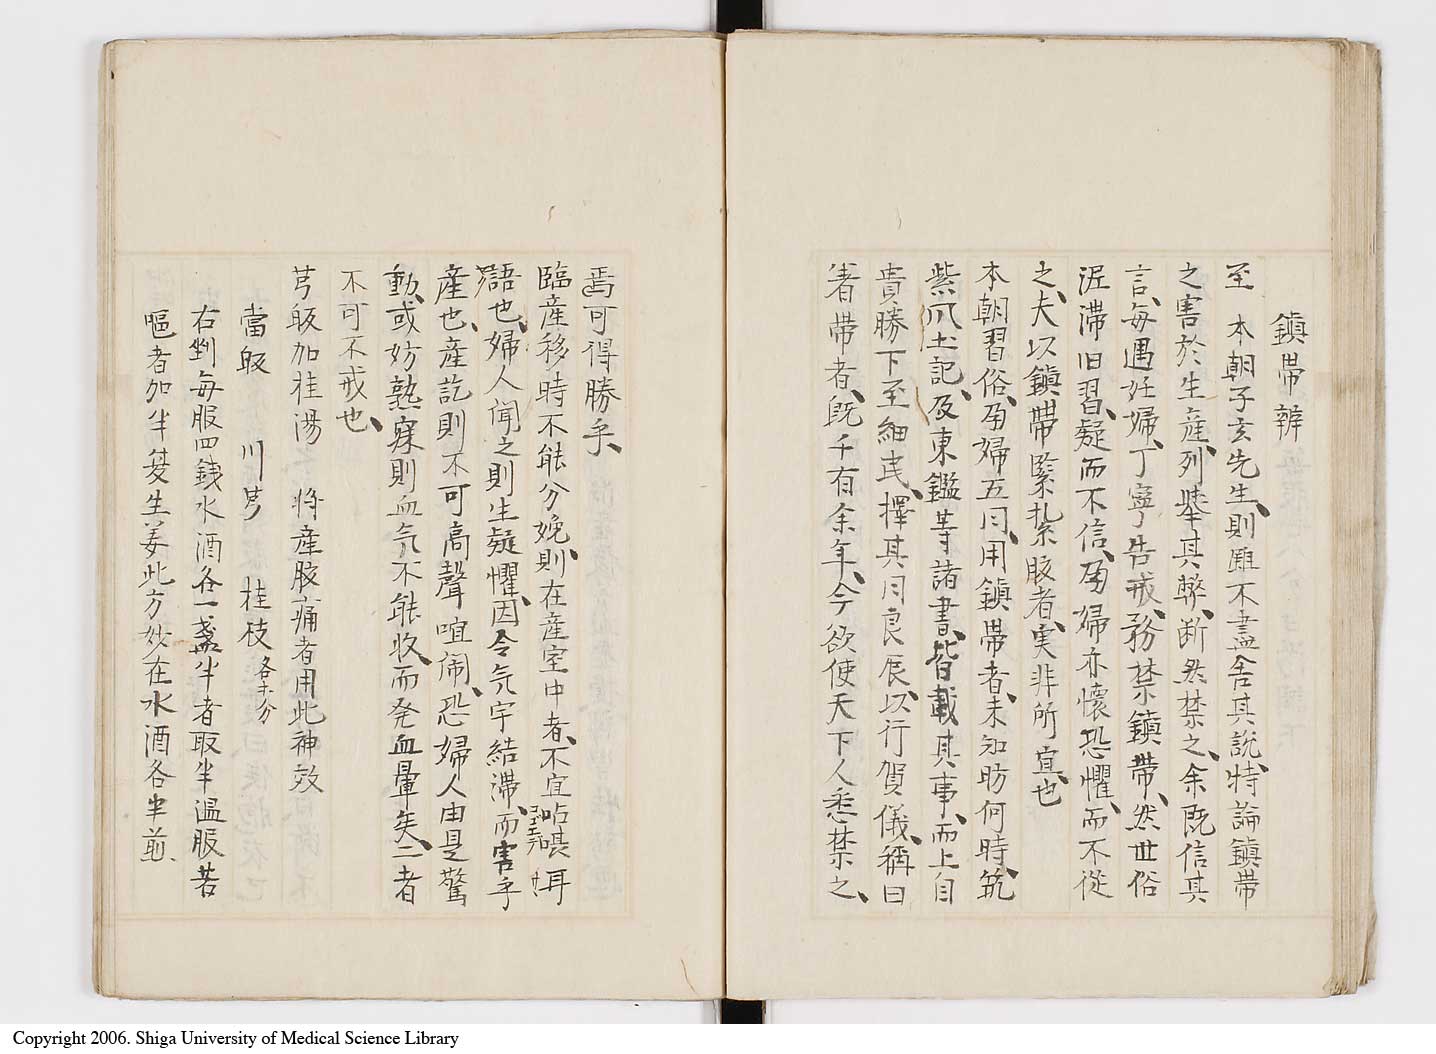 鎮帶辨
至 本朝子玄先生、則雖不盡舍其説、特論鎮帶
之害於生産、列舉其弊、断然禁之、余既信其
言、毎遇妊婦、丁寧告戒、務禁鎮帶、然世俗
泥滞旧習、疑而不信、孕婦亦懐恐懼、而不從
之、夫以鎮帶緊紮腋者、実非所宜也
本朝習俗、孕婦五月、用鎮帶者、未知昉何時、筑
紫風土記、及東鑑等諸書、皆載其事、而上自
貴勝下至細民、擇其月良辰、以行賀儀、稱曰
著帶者、既千有余年、今欲使天下人悉禁之、
焉可得勝乎、
臨産移時不能分娩、則在産室中者、不宜呫㗫耳
語也、婦人聞之則生疑懼、因令気宇結滞、而害乎
産也、産訖則不可高聲喧鬧、恐婦人由是驚
動、或妨熟寐則血気不能收、而発血暈矣、二者
不可不戒也、
芎皈加桂湯 将産腹痛者用此神效
當皈 川芎 桂枝 各等分
右剉毎服四銭水酒各一盞半煮取半温服若
嘔者加半夏生姜此方妙在水酒各半煎、